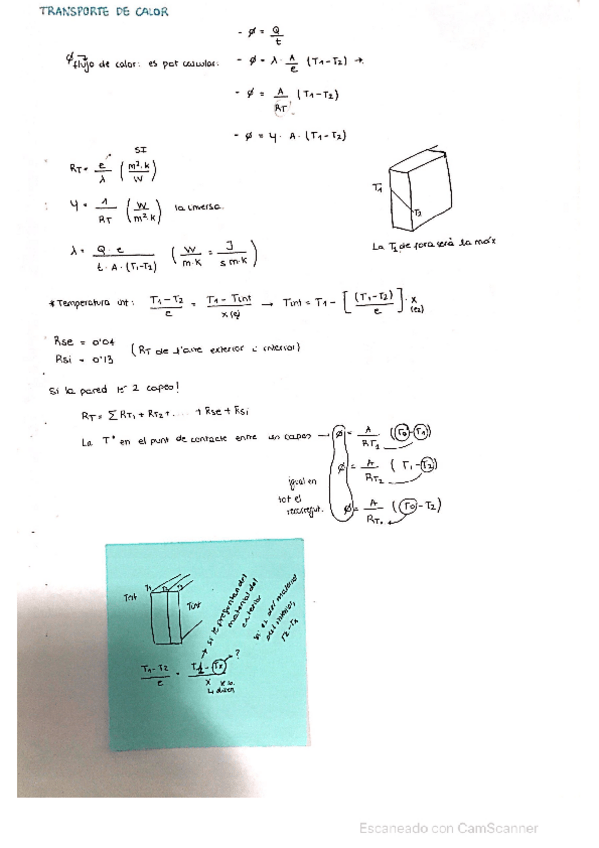 TRANSPORTE DE CALOR
- ϕ = Q/t
ϕ→ flujo de calor: es pot calcular: - ϕ = λ · A/e (T1-T2) →
- ϕ = A/RT (T1-T2)
- ϕ = U · A · (T1-T2)
SI
RT = e/λ (m²·k/W)
U = 1/RT (W/m²·k) la inversa
T1
T2
La T1 de fora serà la màx
λ = Q · e / t · A · (T1-T2) (W/m·K = J/s m·k)
* Temperatura int: T1-T2/e = T1-Tint/x(e) → Tint = T1 - [(T1-T2)/e] · x (e2)
Rse = 0'04
Rsi = 0'13 (RT de l'aire exterior i interior)
Si la pared té 2 capes!
RT = ΣRT1 + RT2 + .... + Rse + Rsi
La Tª en el punt de contacte entre les capes → ϕ = A/RT1 (T0 - T1)
ϕ = A/RT2 (T1 - T2)
igual en tot el recorregut.
ϕ = A/RT0 (T0 - T2)
T1 T2 T3
Text
Tint
si te preguntan del material del exterior
si es del material del interior, T2-T1
T1-T2/e = T1-Tx/x ?
Escaneado con CamScanner